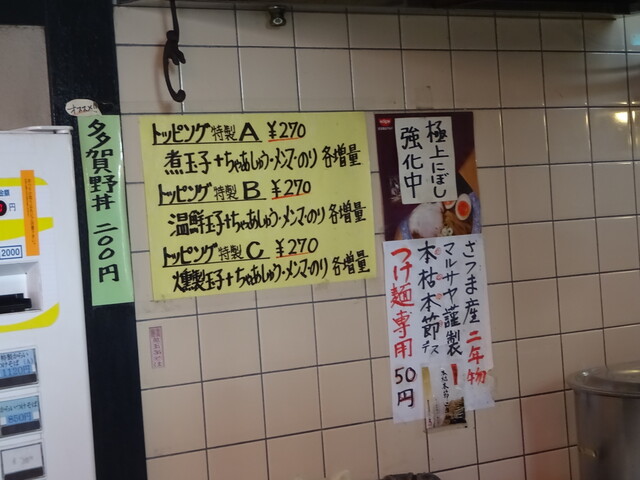 オススメ
多賀野丼 二〇〇円
トッピング特製A ¥270
煮玉子+ちゃあしゅう・メンマ・のり 各増量
トッピング特製B ¥270
温鮮玉子+ちゃあしゅう・メンマ・のり 各増量
トッピング特製C ¥270
燻製玉子+ちゃあしゅう・メンマ・のり 各増量
極上にぼし
強化中
さつま産 二年物
マルサヤ謹製
本枯本節デス
つけ麺専用 50円
円
2000